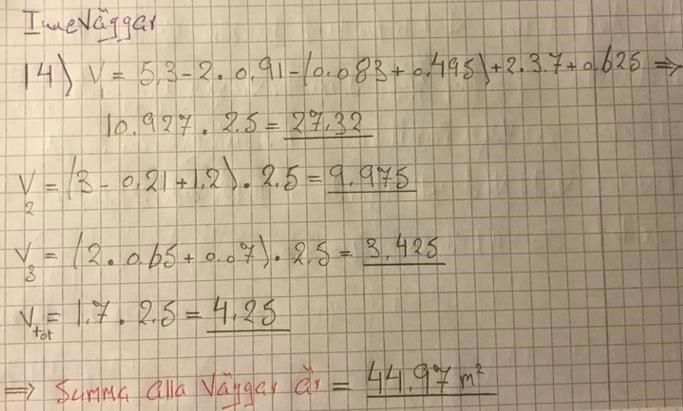 Inneväggar
14) V₁ = 5,3-2·0,91-(0.083+0.495)+2·3.7+0,625 ⇒
10.927 · 2.5 = 27,32
V₂ = (3-0,21+1,2)·2.5 = 9.975
V₃ = (2·0,65+0.07)·2,5 = 3,425
Vtot = 1.7 · 2.5 = 4,25
⇒ Summa alla Väggar är = 44,97 m²